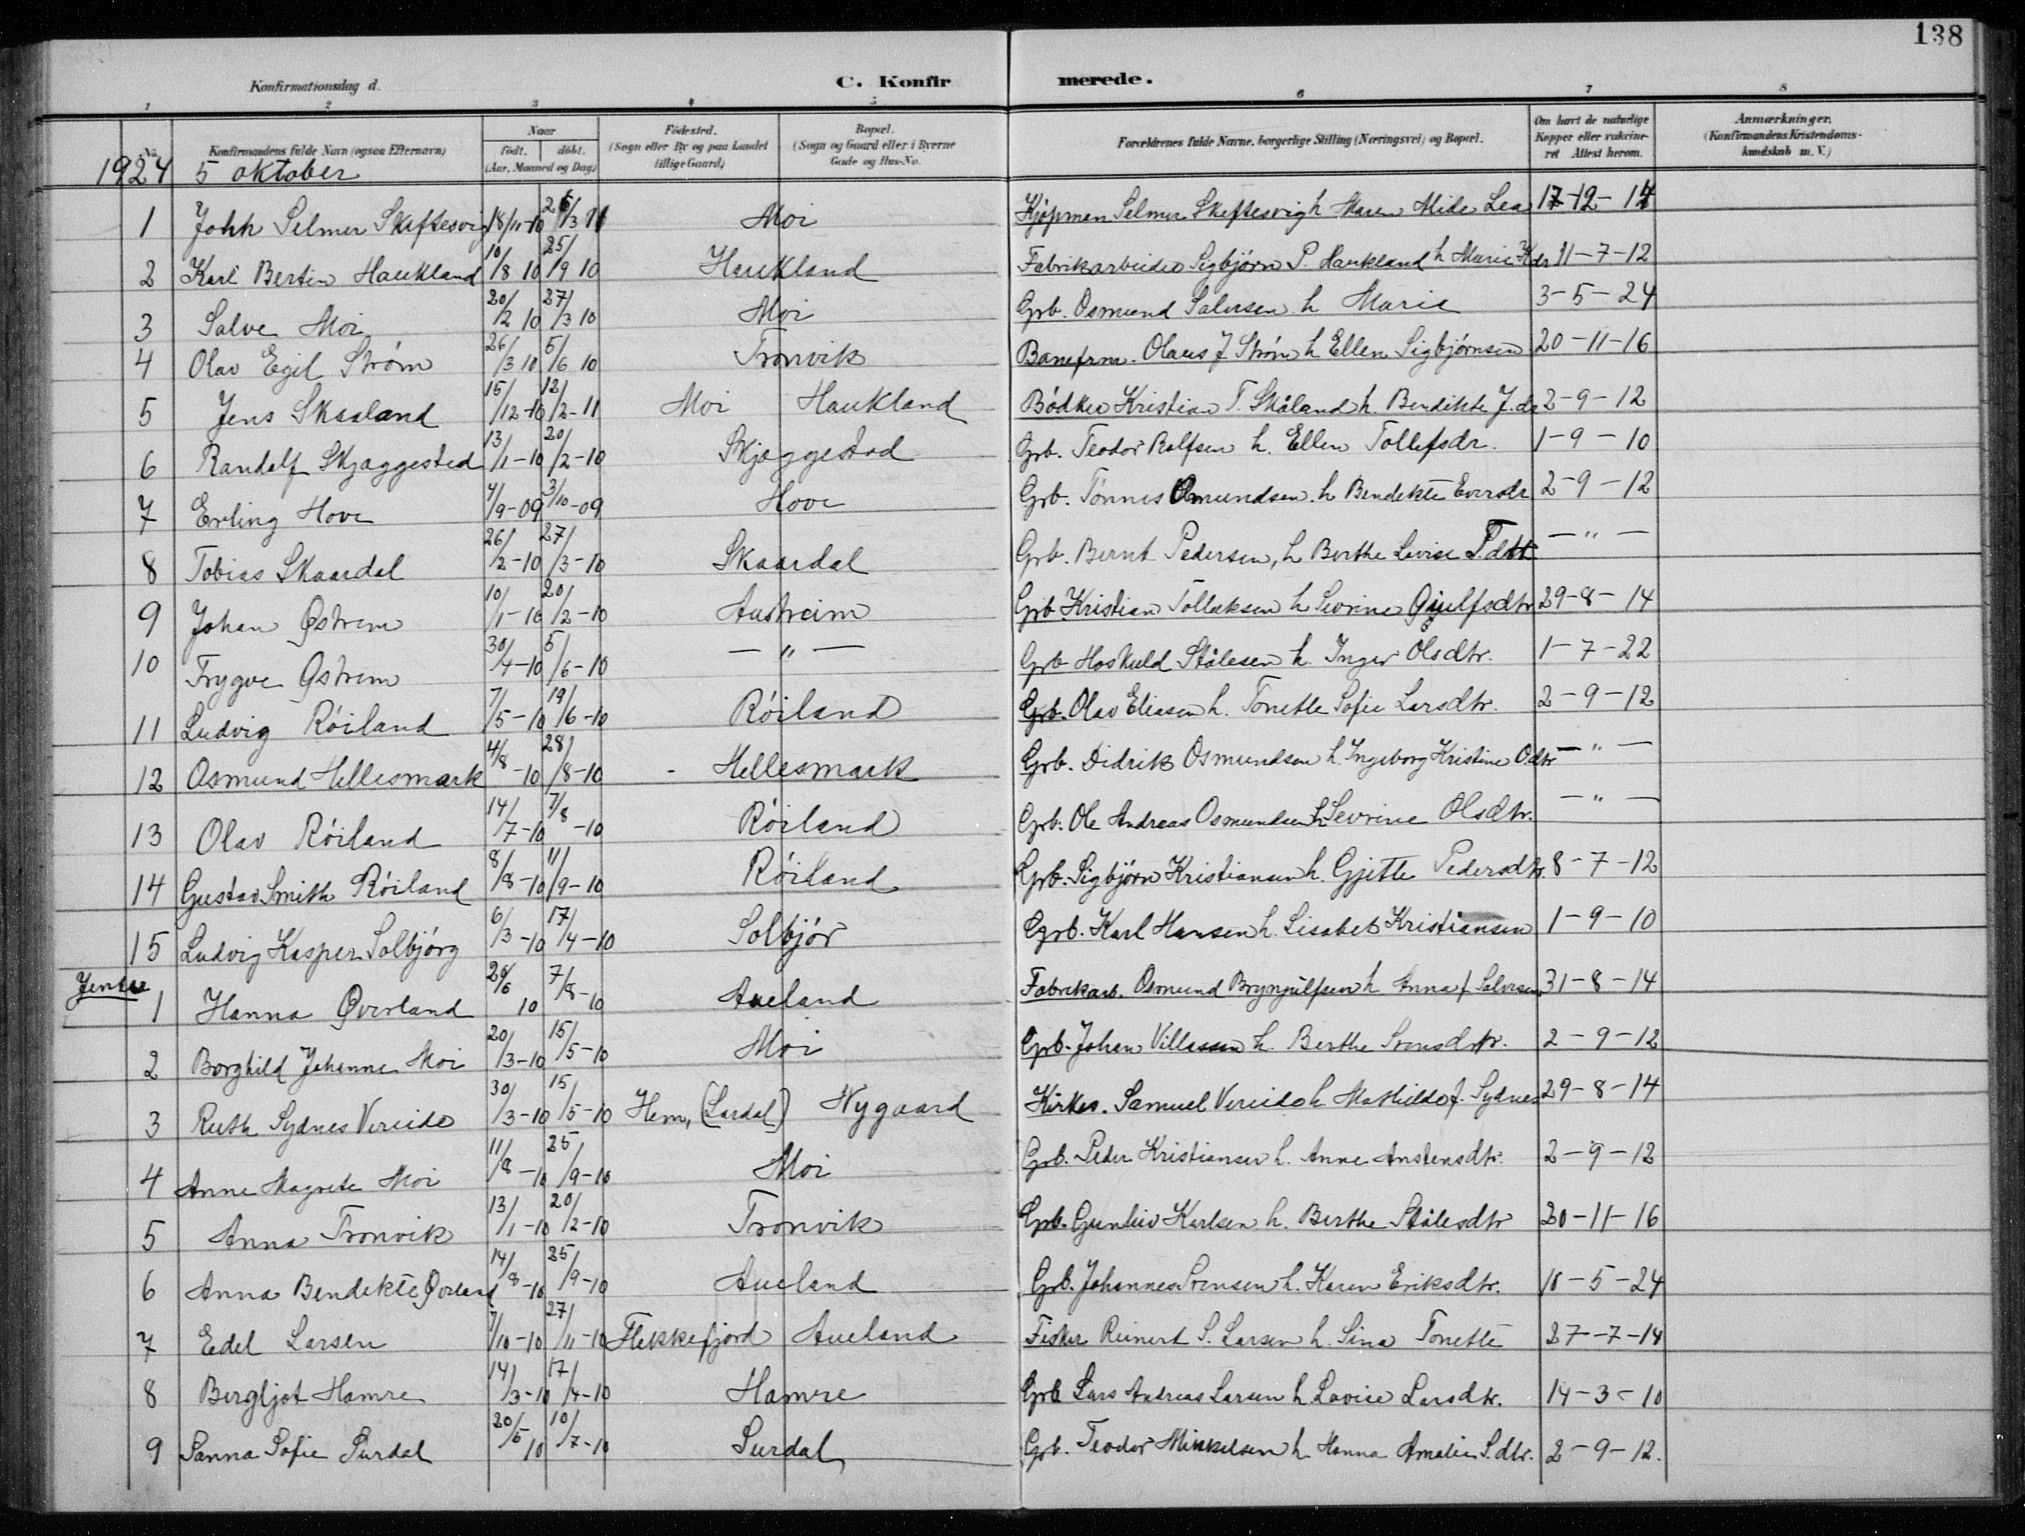 138
Konfirmationsdag d.
C. Konfirmerede.
1 2 3 4 5 6 7 8
No. Konfirmandens fulde Navn (ogsaa Efternavn) Naar født. døbt. (Aar, Maaned og Dag) Fødested. (Sogn eller By og paa Landet tillige Gaard) Bopæl. (Sogn og Gaard eller i Byerne Gade og Hus-No. Forældrenes fulde Navne, borgerlige Stilling (Næringsvei) og Bopæl. Om havt de naturlige Kopper eller vakcineret. Attest herom. Anmærkninger. (Konfirmandens Kristendomskundskab m. V.)
1924 5 oktober
1 John Selmer Skeftesvig 18/11-10 26/3 11 Moi Kjøpman Selmer Skeftesvig h Maren Mide Lea 17-12-14
2 Karl Bertin Haukland 10/8 10 25/9 10 Haukland Fabrikarbeider Sigbjørn P. Haukland h Marie Kdr 11-7-12
3 Salve Moi 20/2 10 27/3 10 Moi Grb. Osmund Salvesen h Marie 3-5-24
4 Olav Egil Strøm 26/3 10 5/6 10 Tronvik Baneform. Olaus J Strøm h Ellen Sigbjørnsen 20-11-16
5 Jens Skaaland 15/12-10 12/2-11 Moi Haukland Bødker Kristian T. Skåland h. Bendikte J.dr 2-9-12
6 Randolf Skjæggestad 13/1-10 20/2-10 Skjæggestad Grb. Teodor Rolfsen h. Ellen Tollefsdr. 1-9-10
7 Erling Hove 4/9-09 3/10-09 Hove Grb. Tønnes Omundsen h Bendikte Eversdr 2-9-12
8 Tobias Skaardal 26/2-10 27/3-10 Skaardal Grb. Bernt Pedersen, h Berthe Lovise T.dtr — " —
9 Johan Østrem 10/1-10 20/2-10 Austreim Grb Kristian Tollaksen h Sevrine Gjulfsdtr 29-8-14
10 Trygve Østrem 30/4-10 5/6-10 — " — Grb Hoskuld Stålesen h. Inger Olsdtr. 1-7-22
11 Ludvig Röiland 7/5-10 19/6-10 Röiland Grb. Olav Eliasen h. Tonette Sofie Larsdtr. 2-9-12
12 Osmund Hellesmark 4/8-10 28/8-10 Hellesmark Grb. Didrik Osmundsen h. Ingeborg Kristine Odtr — " —
13 Olav Röiland 14/7-10 7/8-10 Röiland Grb. Ole Andreas Osmundsen h Sevrine Olsdtr. — " —
14 Gustav Smith Röiland 8/8-10 11/9-10 Röiland Grb. Sigbjørn Kristiansen h. Gjitte Pedersdtr. 8-7-12
15 Ludvig Kasper Solbjørg 6/3-10 17/4-10 Solbjør Grb. Karl Hansen h. Lisabet Kristiansen 1-9-10
Jenter
1 Hanna Øverland 26/6 10 7/8-10 Aueland Fabrikarb. Osmund Brynjulfsen h Anna f Salvesen 31-8-14
2 Borghild Johanne Moi 20/3-10 15/5-10 Moi Grb. Johan Villassen h. Berthe Svensdtr. 2-9-12
3 Ruth Sydnes Vereide 30/3-10 15/5-10 Hem, (Lardal) Nygaard Kirkes. Samuel Vereide h Mathilde f. Sydnes 29-8-14
4 Anne Magrete Moi 11/8-10 25/9-10 Moi Grb. Peder Kristiansen h. Anne Anstensdtr. 2-9-12
5 Anna Tronvik 13/1-10 20/2-10 Tronvik Grb. Gunleiv Karlsen h. Berthe Stålesdtr 20-11-16
6 Anna Bendikte Øverland 14/8-10 25/9-10 Aueland Grb. Johannes Svensen h. Karen Eriksdtr. 10-5-24
7 Edel Larsen 7/10-10 27/11-10 Flekkefjord Aueland Fisker Reinert S. Larsen h. Sina Tonette 27-7-14
8 Bergljot Hamre 14/3-10 17/4-10 Hamre Grb Lars Andreas Larsen h Lovise Larsdtr. 14-3-10
9 Sanna Sofie Surdal 20/5 10 10/7-10 Surdal Grb. Teodor Mikkelsen h Hanna Amalie S.dtr. 2-9-12.